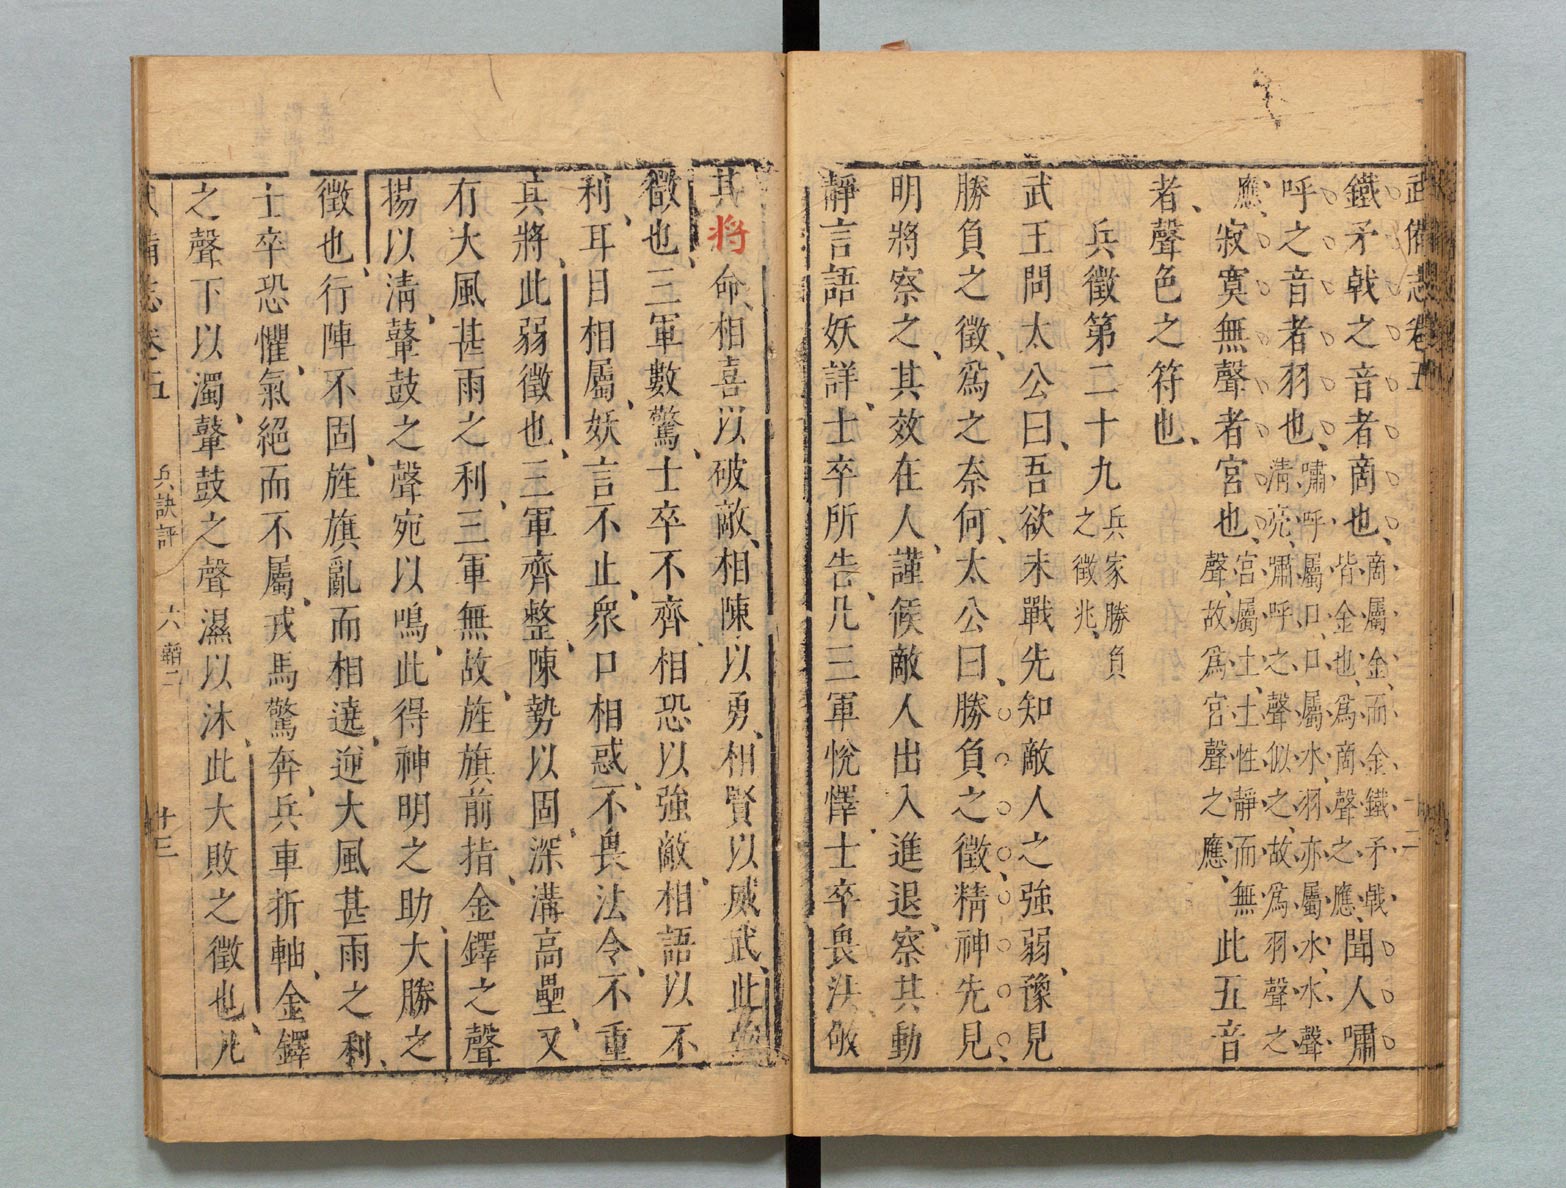 武備志卷五
鐵矛戟之音者商也商屬金而金鐵矛戟皆金也爲商聲之應聞人嘯
呼之音者羽也嘯呼屬口口屬水羽亦屬水水聲清亮嘯呼之聲似之故爲羽聲之
應寂寞無聲者宮也宮屬土土性靜而無聲故爲宮聲之應此五音
者聲色之符也
兵徵第二十九兵家勝負之徵兆
武王問太公曰吾欲未戰先知敵人之強弱豫見
勝負之徵爲之奈何太公曰勝負之徵精神先見
明將察之其效在人謹候敵人出入進退察其動
靜言語妖詳士卒所告凡三軍悅懌士卒畏法敬
其將命相喜以破敵相陳以勇相賢以威武此強
徵也三軍數驚士卒不齊相恐以強敵相語以不
利耳目相屬妖言不止衆口相惑不畏法令不重
其將此弱徵也三軍齊整陳勢以固深溝高壘又
有大風甚雨之利三軍無故旌旗前指金鐸之聲
揚以清鼙鼓之聲宛以鳴此得神明之助大勝之
徵也行陣不固旌旗亂而相遶逆大風甚雨之利
士卒恐懼氣絕而不屬戎馬驚奔兵車折軸金鐸
之聲下以濁鼙鼓之聲濕以沐此大敗之徵也凡
武備志卷五 兵訣評 六韜二 廿三